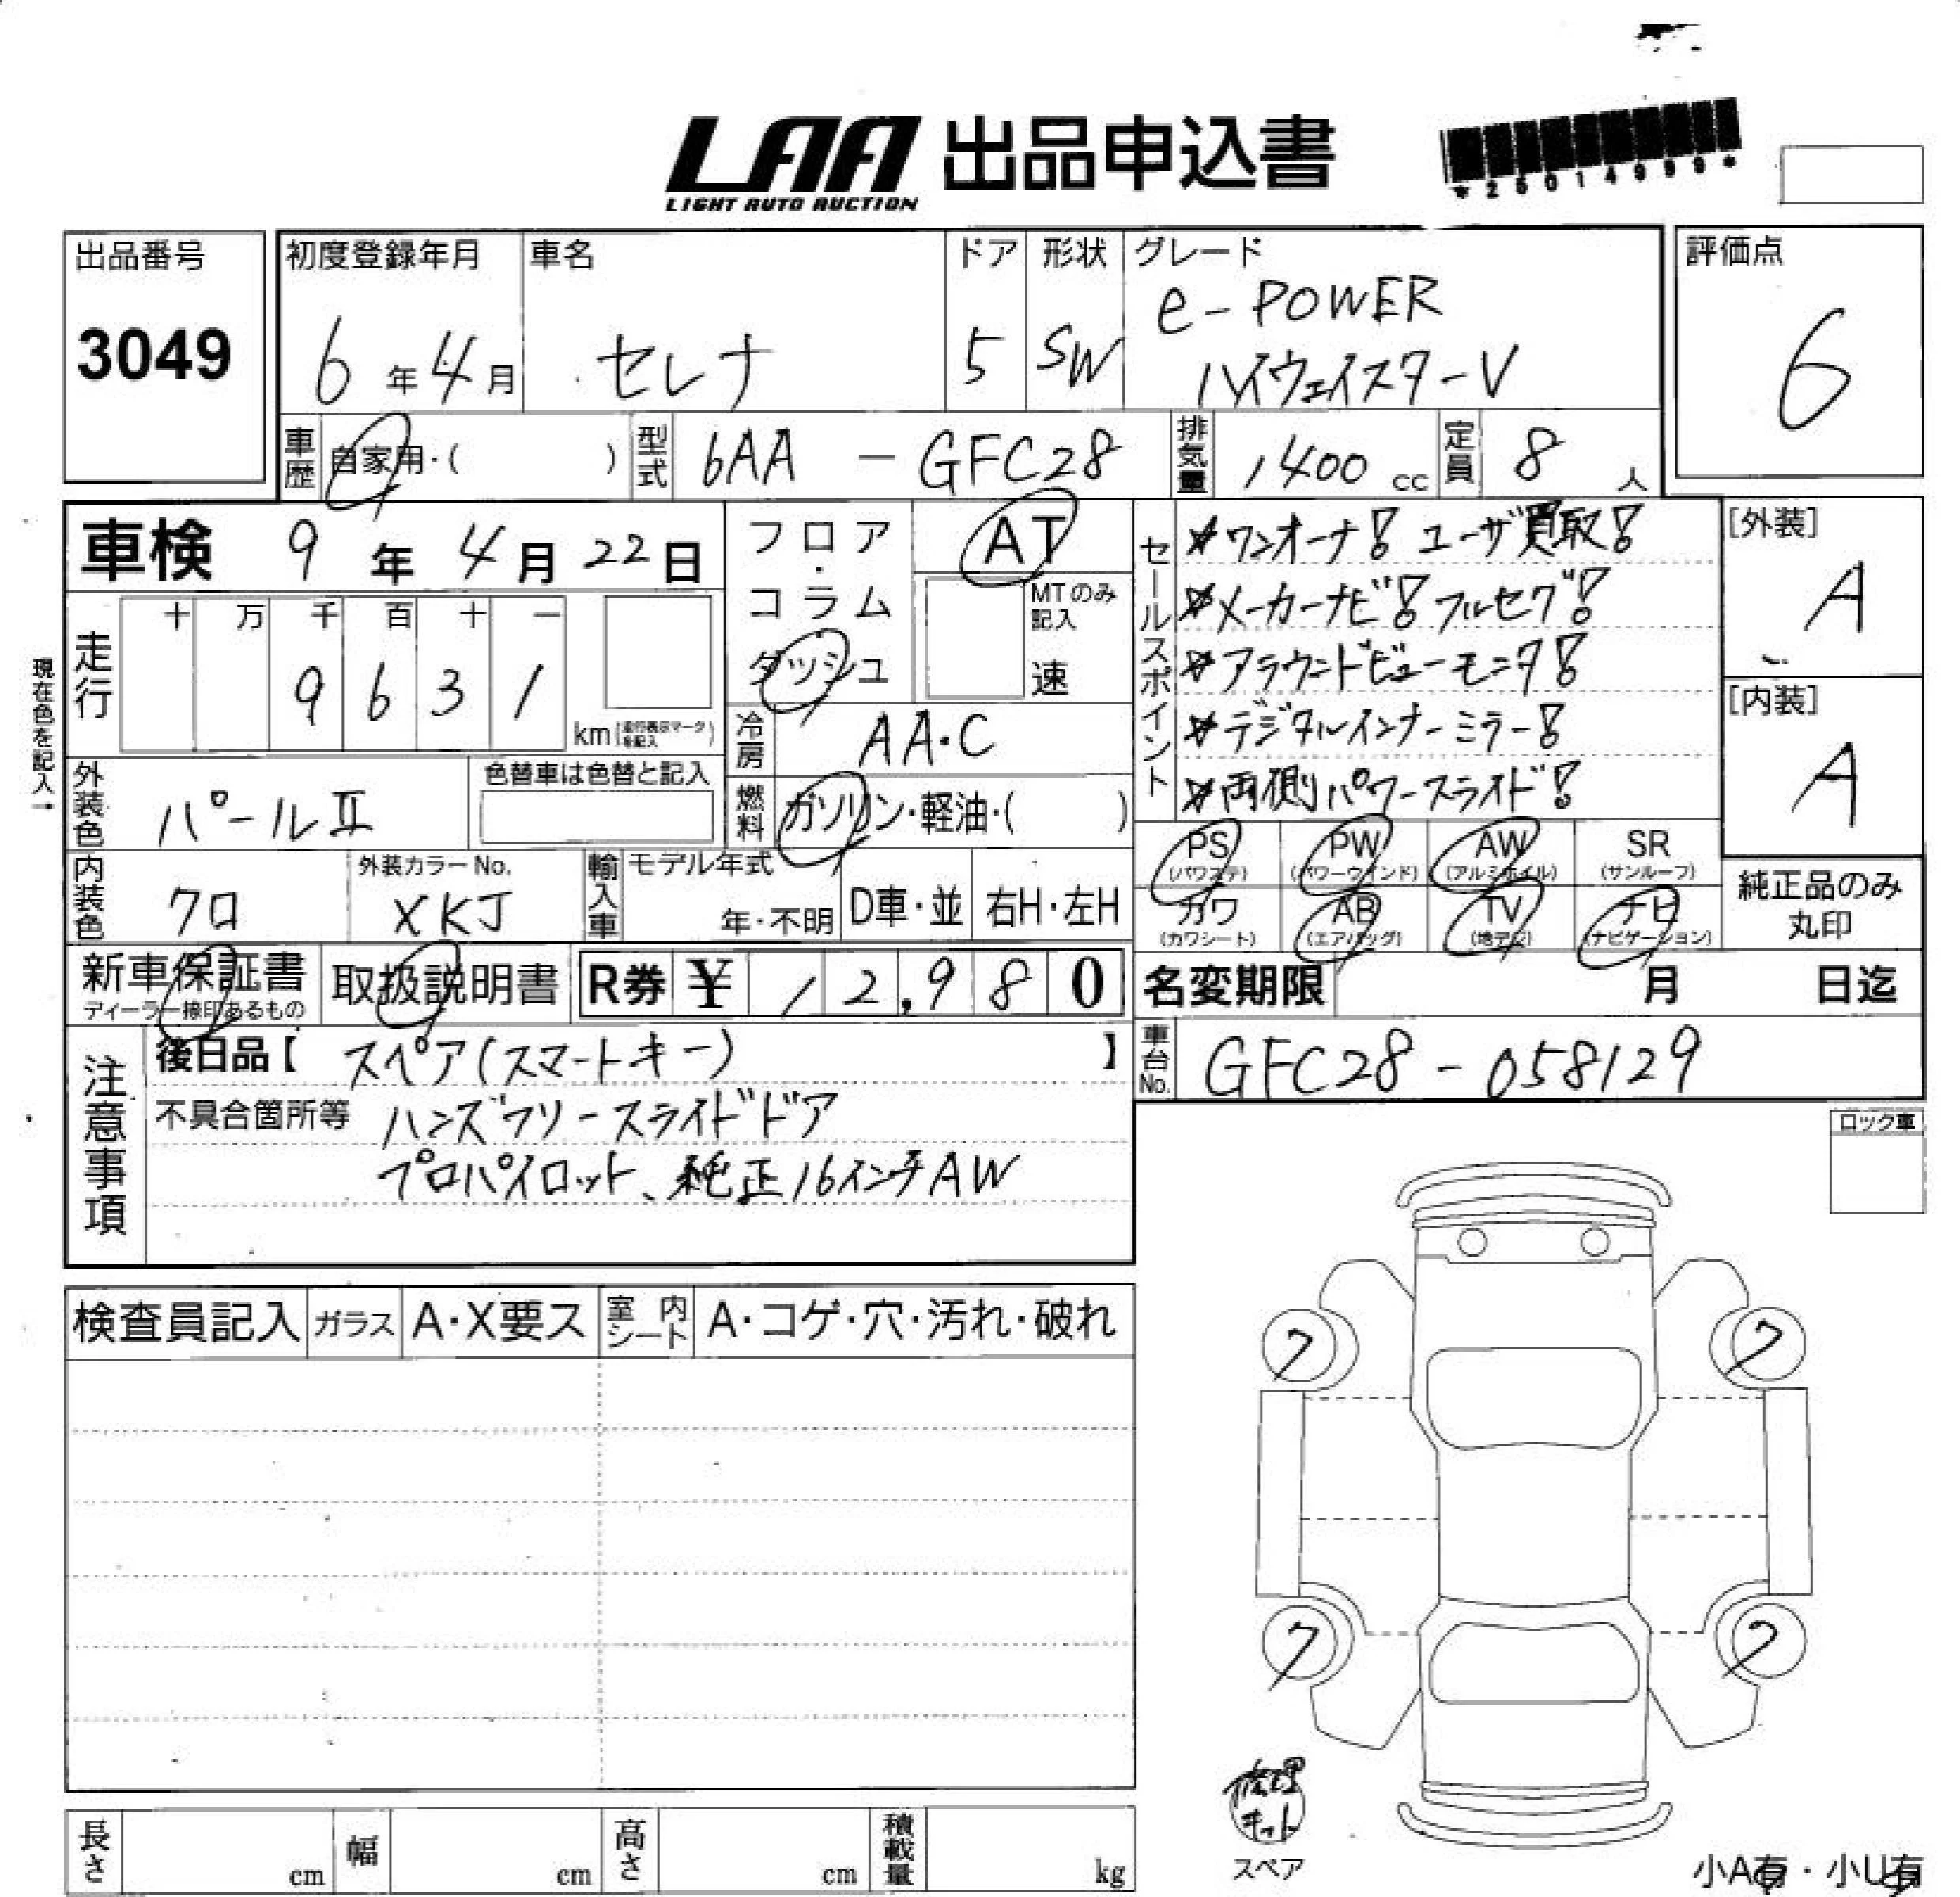 LAA 出品申込書
LIGHT AUTO AUCTION
*25014999*
出品番号
3049
初度登録年月
6年4月
車名
セレナ
ドア
5
形状
SW
グレード
e-POWER
ハイウェイスターV
評価点
6
車歴
自家用・( )
型式
6AA - GFC28
排気量
1400 cc
定員
8人
車検 9年4月22日
走行
十 万 千 百 十 一
9 6 3 1
km
フロア・コラム
ダッシュ
AT
MTのみ記入
速
冷房
AA・C
燃料
ガソリン・軽油・( )
セールスポイント
ワンオーナ! ユーザ買取!
メーカーナビ! フルセグ!
アラウンドビューモニタ!
デジタルインナーミラー!
両側パワースライド!
[外装]
A
[内装]
A
現在色を記入→
外装色
パールⅡ
色替車は色替と記入
内装色
クロ
外装カラーNo.
XKJ
輸入車
モデル年式
年・不明
D車・並
右H・左H
PS (パワステ)
PW (パワーウインド)
AW (アルミホイル)
SR (サンルーフ)
カワ (カワシート)
AB (エアバッグ)
TV (地デジ)
ナビ (ナビゲーション)
純正品のみ
丸印
新車保証書
ディーラー捺印あるもの
取扱説明書
R券 ¥ 12,980
名変期限 月 日迄
車台No.
GFC28-058129
注意事項
後日品【 スペア(スマートキー) 】
不具合箇所等 ハンズフリースライドドア
プロパイロット、純正16インチAW
ロック車
検査員記入
ガラス
A・X要ス
室内シート
A・コゲ・穴・汚れ・破れ
7
7
7
7
修理
キット
スペア
長さ cm
幅 cm
高さ cm
積載量 kg
小A有・小U有